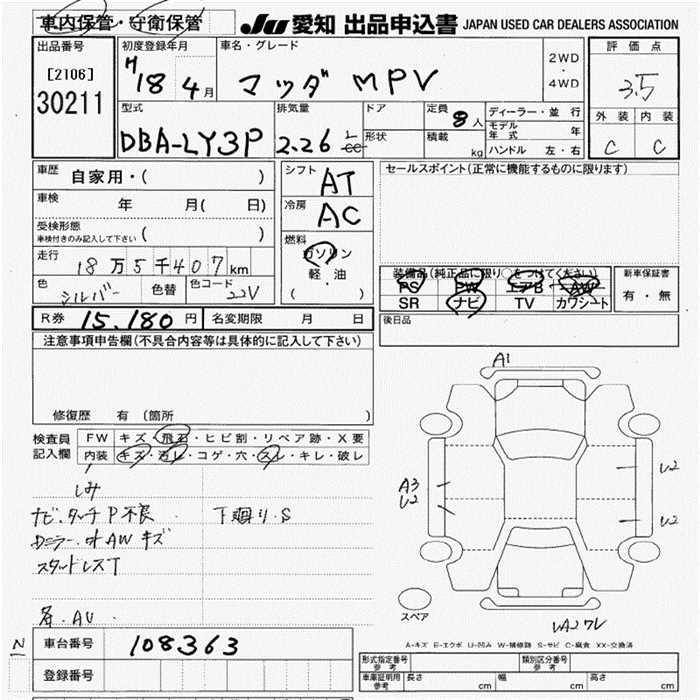 車内保管・守衛保管
JU 愛知 出品申込書 JAPAN USED CAR DEALERS ASSOCIATION
出品番号
[2106]
30211
初度登録年月
H18年4月
車名・グレード
マツダ MPV
2WD・4WD
評価点
3.5
外装 内装
C C
型式
DBA-LY3P
排気量
2.26 L cc
ドア
形状
定員 8人
積載 kg
ディーラー・並行
モデル年式 年
ハンドル 左・右
車歴 自家用・( )
車検 年 月( 日)
受検形態
車検付きのみ記入して下さい ( )
走行 18万5千407km
色 シルバー 色替 色コード 22V
シフト AT
冷房 AC
燃料
ガソリン
軽・油
( )
セールスポイント(正常に機能するものに限ります)
装備品(純正品に限り○をつけてください)
PS PW エアB AW
SR ナビ TV カワシート
新車保証書
有・無
R券 15.180円 名変期限 月 日
後日品
注意事項申告欄(不具合内容等は具体的に記入して下さい)
修復歴 有(箇所 )
検査員記入欄
FW キズ・飛石・ヒビ割・リペア跡・X要
内装 キズ・汚レ・コゲ・穴・スレ・キレ・破レ
シミ
ナビ.タッチP不良 下廻り.S
Dミラー.オAWキズ
スタッドレスT
各.AU.
A1
A3
U2
U2
U2
スペア
A-キズ E-エクボ U-凹み W-補修跡 S-サビ C-腐食 XX-交換済
車台番号 108363
登録番号
形式指定番号 参考
類別区分番号 参考
車庫証明用 参考 長さ cm 幅 cm 高さ cm